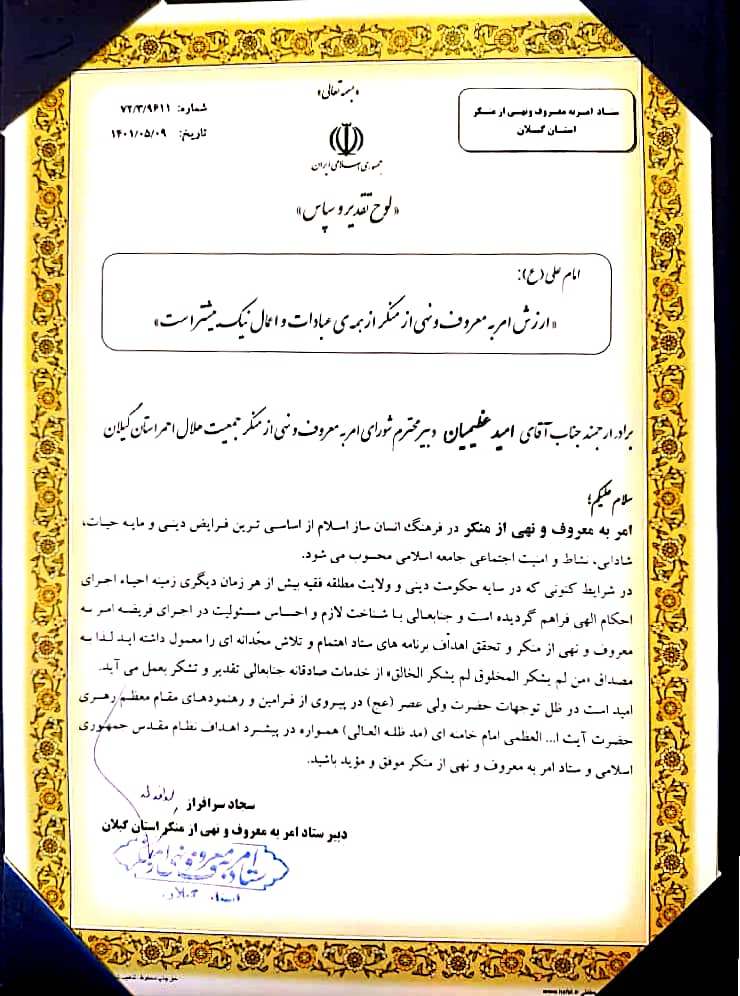 «بسمه تعالی»
ستاد امر به معروف ونهی از منکر
استان گیلان
شماره: ۷۲/۳/۹۶۱۱
تاریخ: ۱۴۰۱/۰۵/۰۹
جمهوری اسلامی ایران
«لوح تقدیر و سپاس»
امام علی (ع):
«ارزش امر به معروف و نهی از منکر از همه ی عبادات و اعمال نیک بیشتر است»
برادر ارجمند جناب آقای امید عظیمیان دبیر محترم شورای امر به معروف و نهی از منکر جمعیت هلال احمر استان گیلان
سلام علیکم؛
امر به معروف و نهی از منکر در فرهنگ انسان ساز اسلام از اساسی ترین فرایض دینی و مایه حیات،
شادابی، نشاط و امنیت اجتماعی جامعه اسلامی محسوب می شود.
در شرایط کنونی که در سایه حکومت دینی و ولایت مطلقه فقیه بیش از هر زمان دیگری زمینه احیاء اجرای
احکام الهی فراهم گردیده است و جنابعالی با شناخت لازم و احساس مسئولیت در اجرای فریضه امر به
معروف و نهی از منکر و تحقق اهداف برنامه های ستاد اهتمام و تلاش مجدانه ای را معمول داشته اید لذا به
مصداق «من لم یشکر المخلوق لم یشکر الخالق» از خدمات صادقانه جنابعالی تقدیر و تشکر بعمل می آید.
امید است در ظل توجهات حضرت ولی عصر (عج) در پیروی از فرامین و رهنمودهای مقام معظم رهبری
حضرت آیت ا... العظمی امام خامنه ای (مد ظله العالی) همواره در پیشبرد اهداف نظام مقدس جمهوری
اسلامی و ستاد امر به معروف و نهی از منکر موفق و مؤید باشید.
سجاد سرافراز
دبیر ستاد امر به معروف و نهی از منکر استان گیلان
ستاد امر به معروف و نهی از منکر
استان گیلان